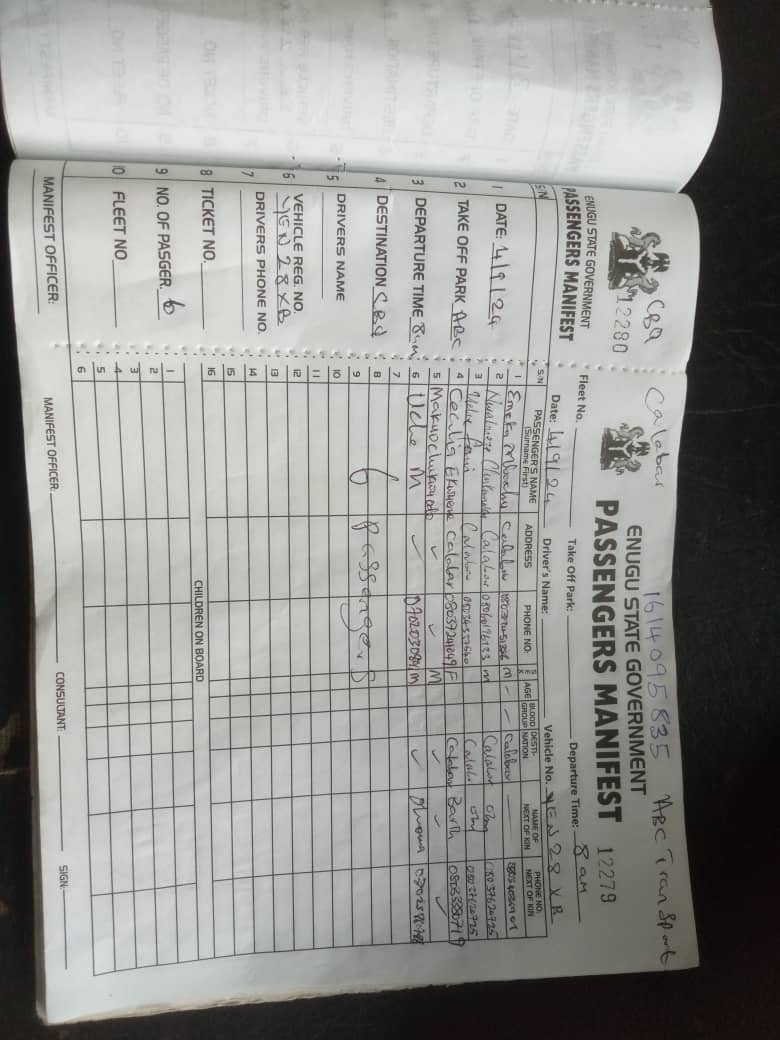 CBQ
12280
ENUGU STATE GOVERNMENT
PASSENGERS MANIFEST
S/N
1 DATE: 4/9/24
2 TAKE OFF PARK ABC
3 DEPARTURE TIME 8am
4 DESTINATION CBQ
5 DRIVERS NAME
6 VEHICLE REG. NO.
YEN 28 XB
7 DRIVERS PHONE NO.
8 TICKET NO.
9 NO. OF PASGER. 6
10 FLEET NO
MANIFEST OFFICER:
Calabar 1614095835 ABC Transport
ENUGU STATE GOVERNMENT
PASSENGERS MANIFEST 12279
Fleet No. Take Off Park: Departure Time: 8 am
Date: 4/9/24 Driver's Name: Vehicle No. YEN 28 XB
S/N PASSENGER'S NAME (Surname First) ADDRESS PHONE NO. SEX AGE BLOOD GROUP DESTI-NATION NAME OF NEXT OF KIN PHONE NO. NEXT OF KIN
1 Emeka Calabar M - - Calabar -
2 Calabar 08060176133 m Calabar Oby 08037624725
3 Calabar Calabar Oby 08037624725
4 Cecilia Calabar 08037241049 F Calabar Barth 0803388719
5 ✓ ✓ M ✓ ✓ ✓
6 Uche M ✓ m ✓
7
8
9 6 Passengers
10
11
12
13
14
15
16
CHILDREN ON BOARD
1
2
3
4
5
6
MANIFEST OFFICER: CONSULTANT: SIGN: